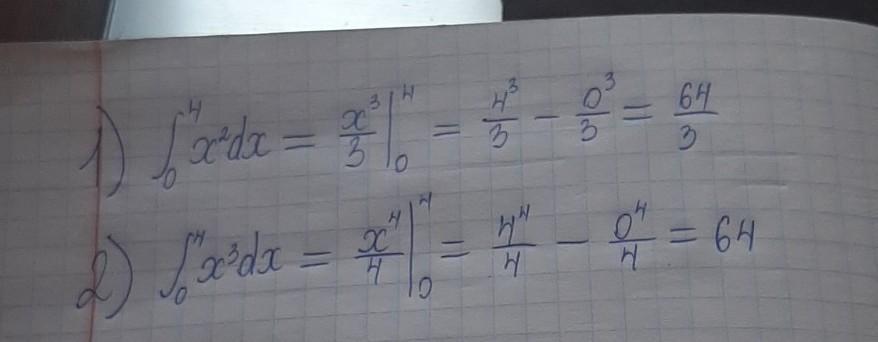 1) ∫₀⁴ x²dx = x³/3 |₀⁴ = 4³/3 − 0³/3 = 64/3
2) ∫₀⁴ x³dx = x⁴/4 |₀⁴ = 4⁴/4 − 0⁴/4 = 64